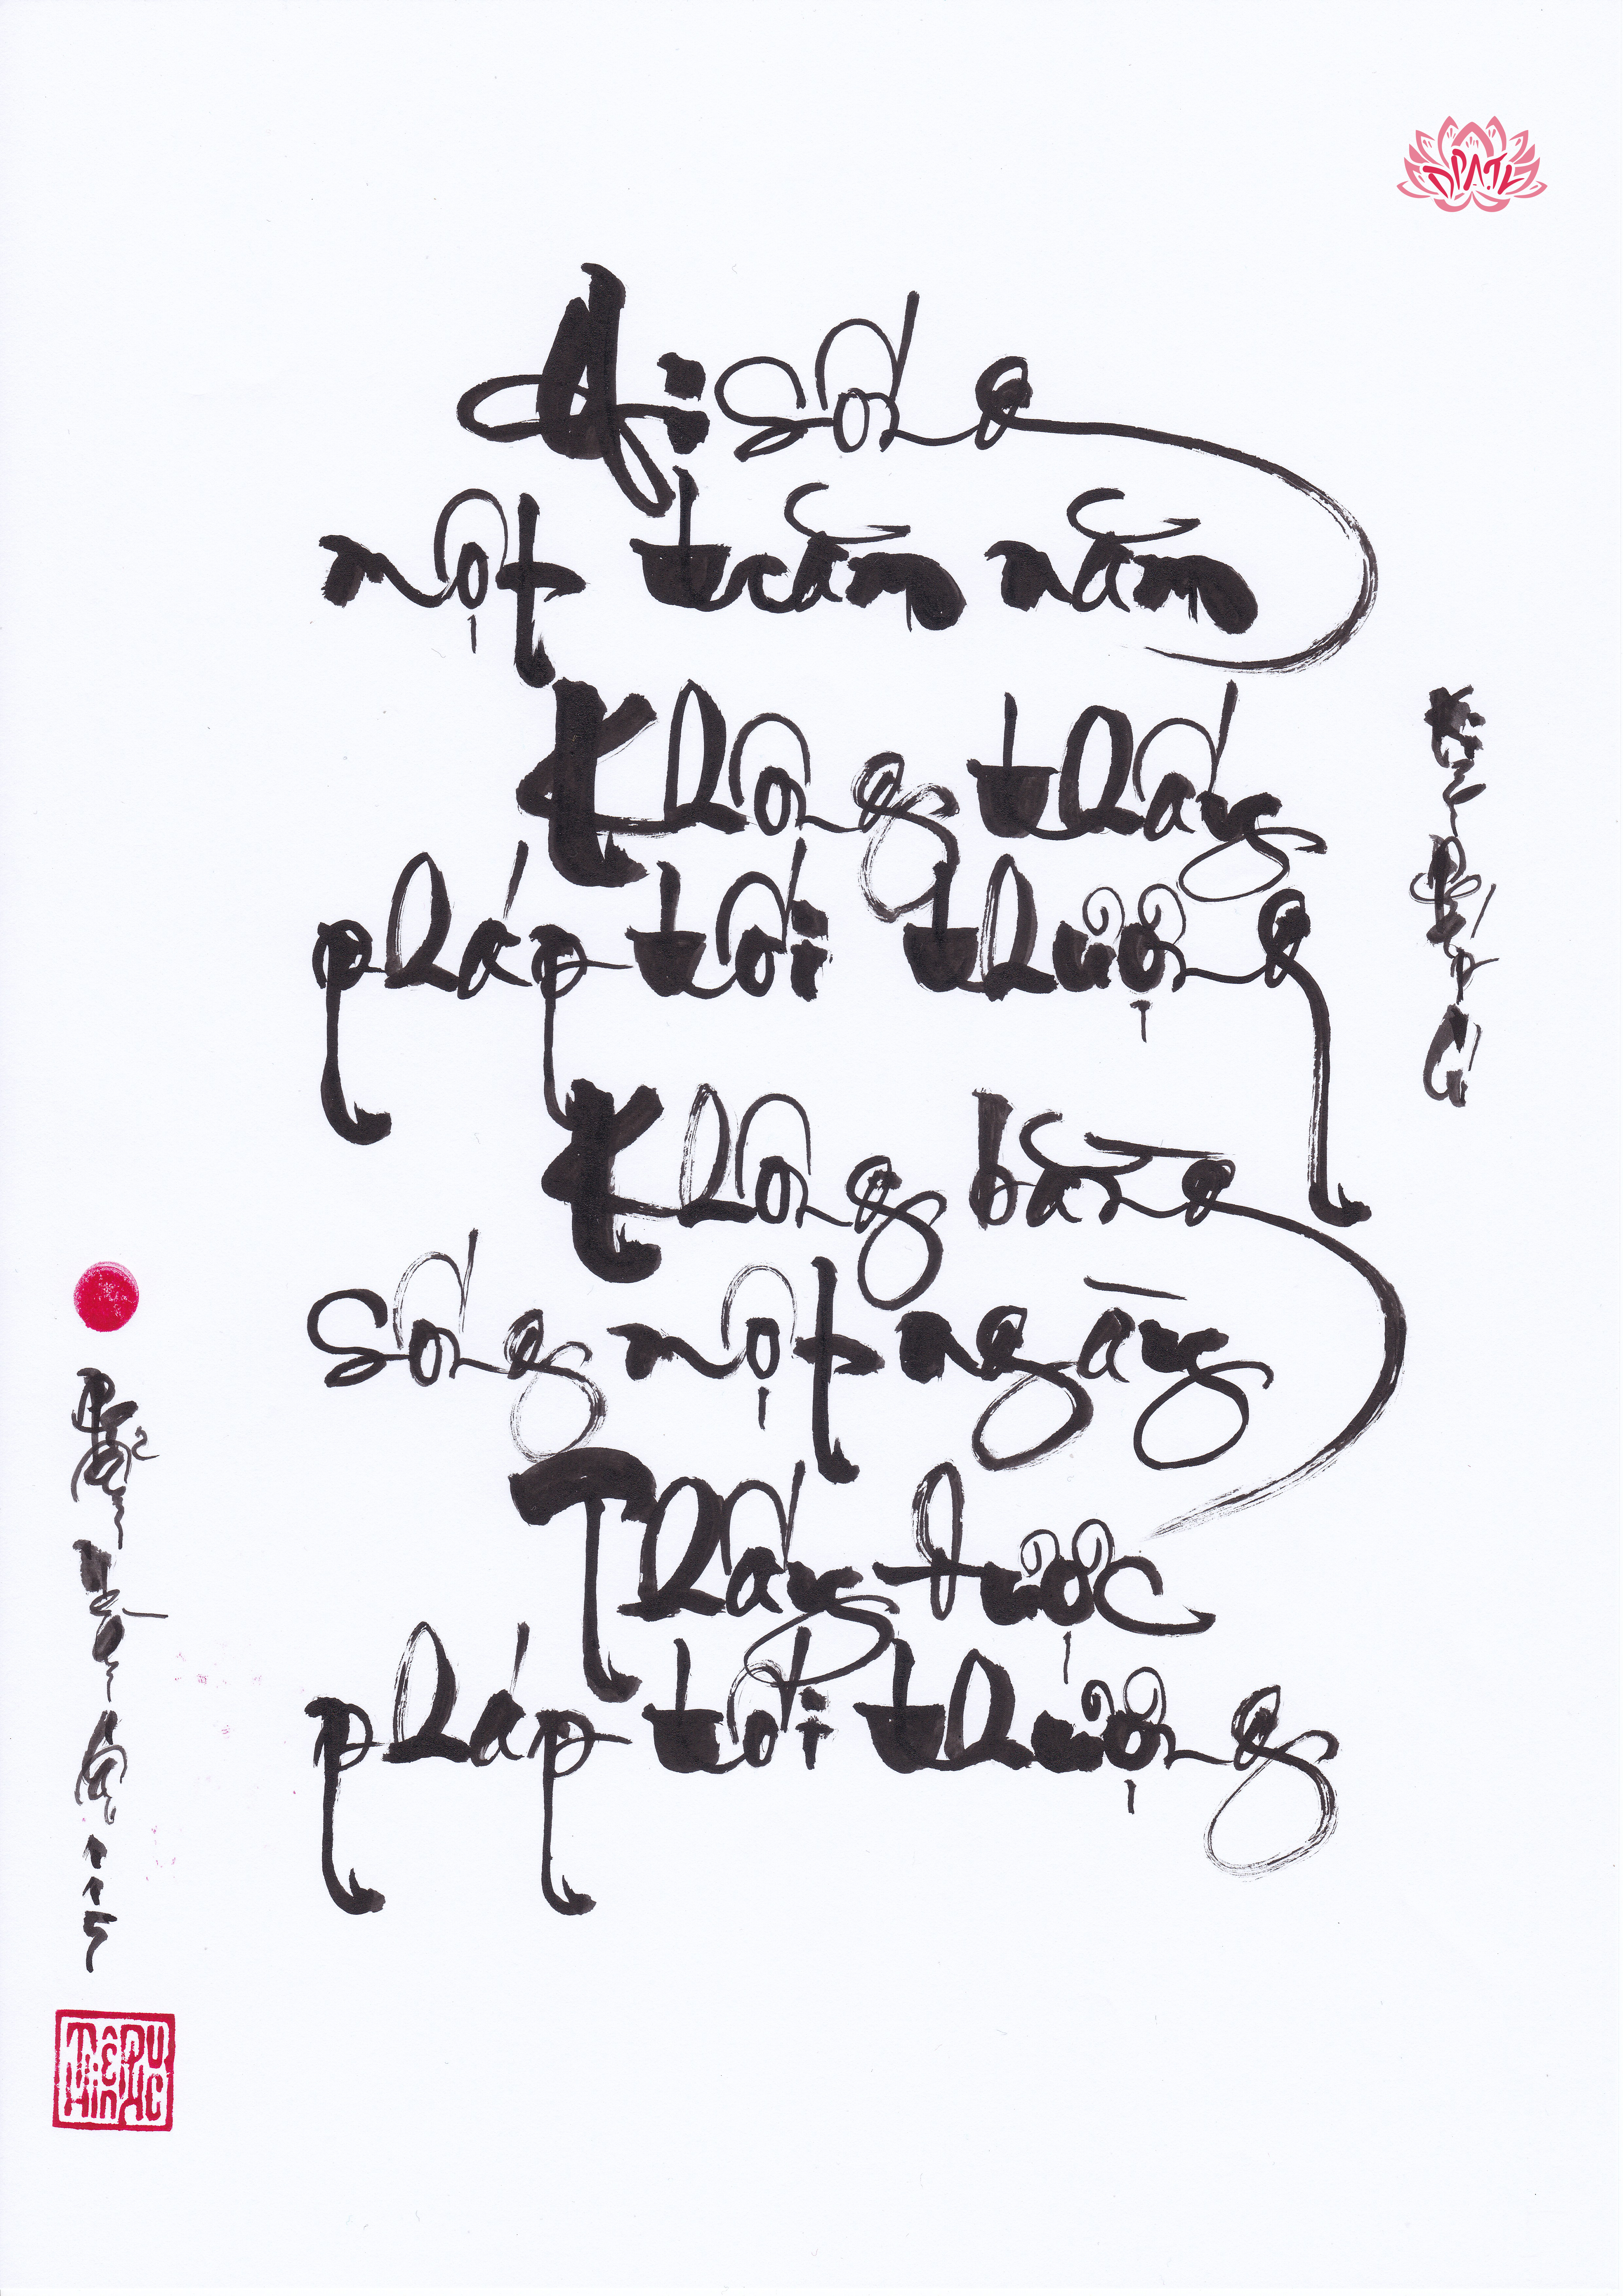 DPATL
Ai sống
một trăm năm
Không thấy
pháp tối thượng
Không bằng
sống một ngày
Thấy được
pháp tối thượng
Kinh Pháp Cú
Phẩm Ngàn
câu 115